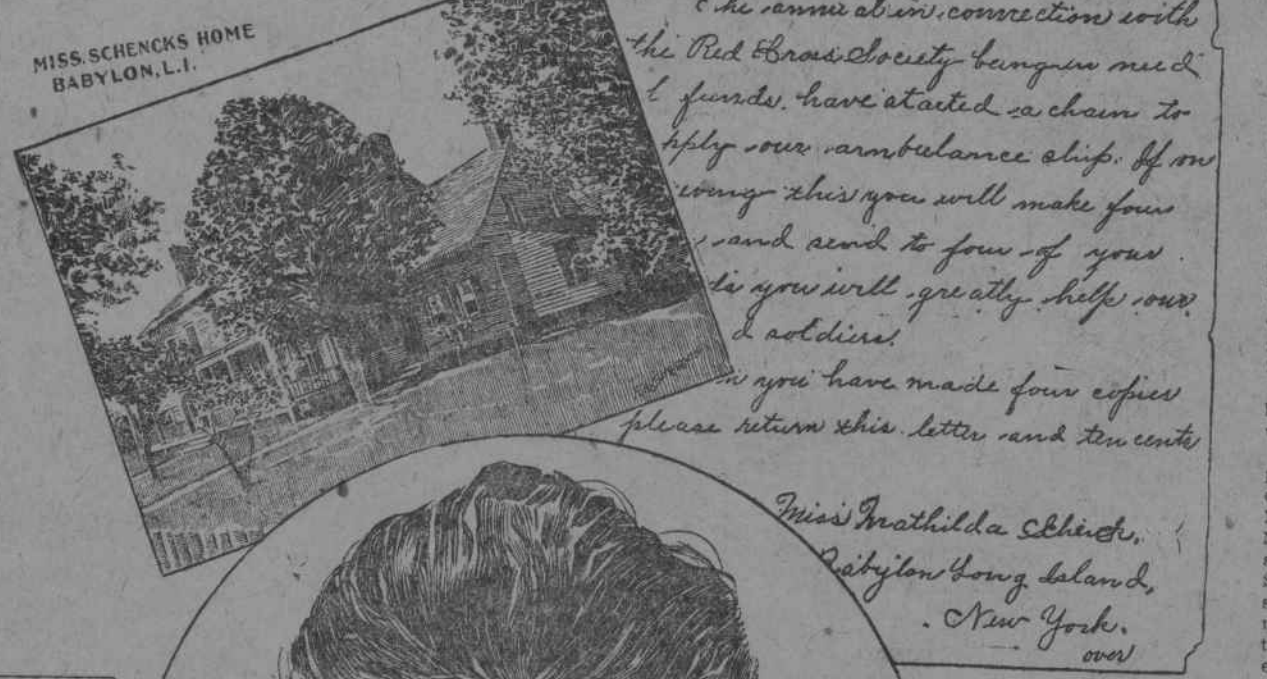 MISS. SCHENCKS HOME
BABYLON, L.I.
in connection with
the Red Cross Society being in need
funds. have started a chain to
pply our ambulance ship. If on
eiving this you will make four
and send to four of your
ds you will greatly help our
d soldiers.
n you have made four copies
please return this letter and ten cents
Miss Mathilda Schenck,
Babylon Long Island,
New York.
over